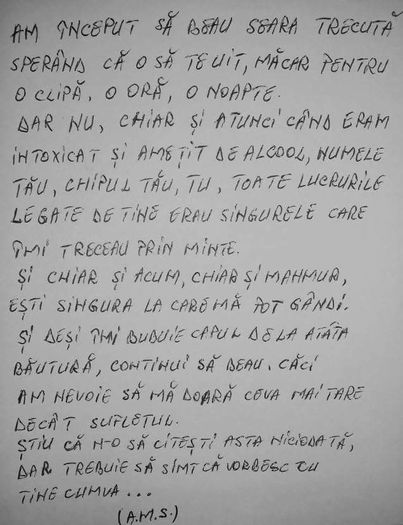 AM ÎNCEPUT SĂ BEAU SEARA TRECUTĂ
SPERÂND CĂ O SĂ TE UIT, MĂCAR PENTRU
O CLIPĂ, O ORĂ, O NOAPTE.
DAR NU, CHIAR ȘI ATUNCI CÂND ERAM
INTOXICAT ȘI AMEȚIT DE ALCOOL, NUMELE
TĂU, CHIPUL TĂU, TU, TOATE LUCRURILE
LEGATE DE TINE ERAU SINGURELE CARE
ÎMI TRECEAU PRIN MINTE.
ȘI CHIAR ȘI ACUM, CHIAR ȘI MAHMUR,
EȘTI SINGURA LA CARE MĂ POT GÂNDI.
ȘI DEȘI ÎMI BUBUIE CAPUL DE LA ATÂTA
BĂUTURĂ, CONTINUI SĂ BEAU. CĂCI
AM NEVOIE SĂ MĂ DOARĂ CEVA MAI TARE
DECÂT SUFLETUL.
ȘTIU CĂ N-O SĂ CITEȘTI ASTA NICIODATĂ,
DAR TREBUIE SĂ SIMT CĂ VORBESC CU
TINE CUMVA...
(A.M.S.)